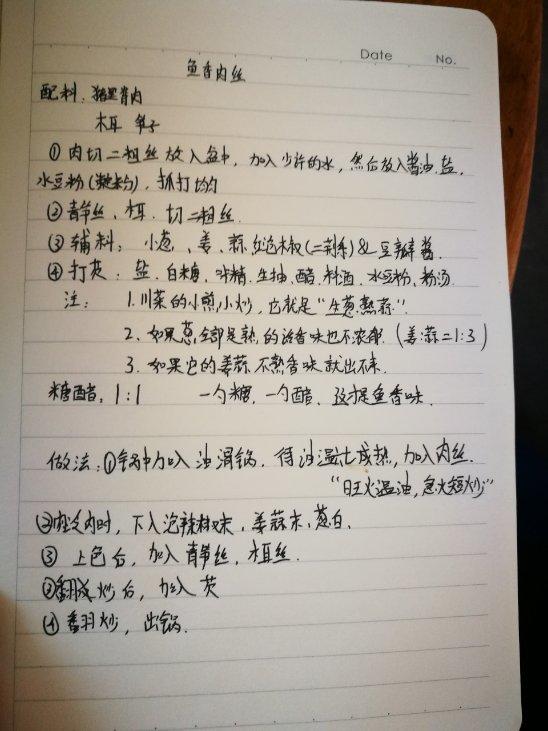 Date No.
鱼香肉丝
配料:猪里脊肉
木耳 笋子
①肉切二粗丝放入盆中,加入少许的水,然后放入酱油,盐,
水豆粉(淀粉),抓打均匀
②青笋丝、木耳、切二粗丝.
③辅料:小葱、姜、蒜 泡椒(二荆条)&豆瓣酱.
④打芡:盐、白糖、味精、生抽、醋、料酒、水豆粉、粉汤.
注: 1.川菜的小煎小炒,它就是“生葱熟蒜”.
2、如果葱全部是熟的话香味也不浓郁.(姜:蒜=1:3)
3.如果它的姜蒜不熟香味就出不来.
糖醋,1:1 一勺糖,一勺醋、这才是鱼香味.
做法:①锅中加入油滑锅.待油温七成热,加入肉丝.
“旺火温油,急火短炒”
②肉时,下入泡辣椒末、姜蒜末、葱白.
③上色后,加入青笋丝,木耳丝.
③翻炒后,加入芡
④翻炒,出锅.